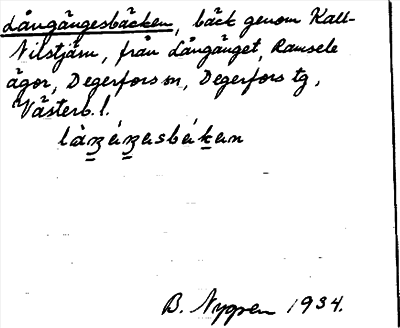 Långängesbäcken, bäck genom Kall-
Nilstjärn, från Långänget, Ramsele
ägor, Degerfors sn, Degerfors tg,
Västerb. l.
B. Nygren 1934.